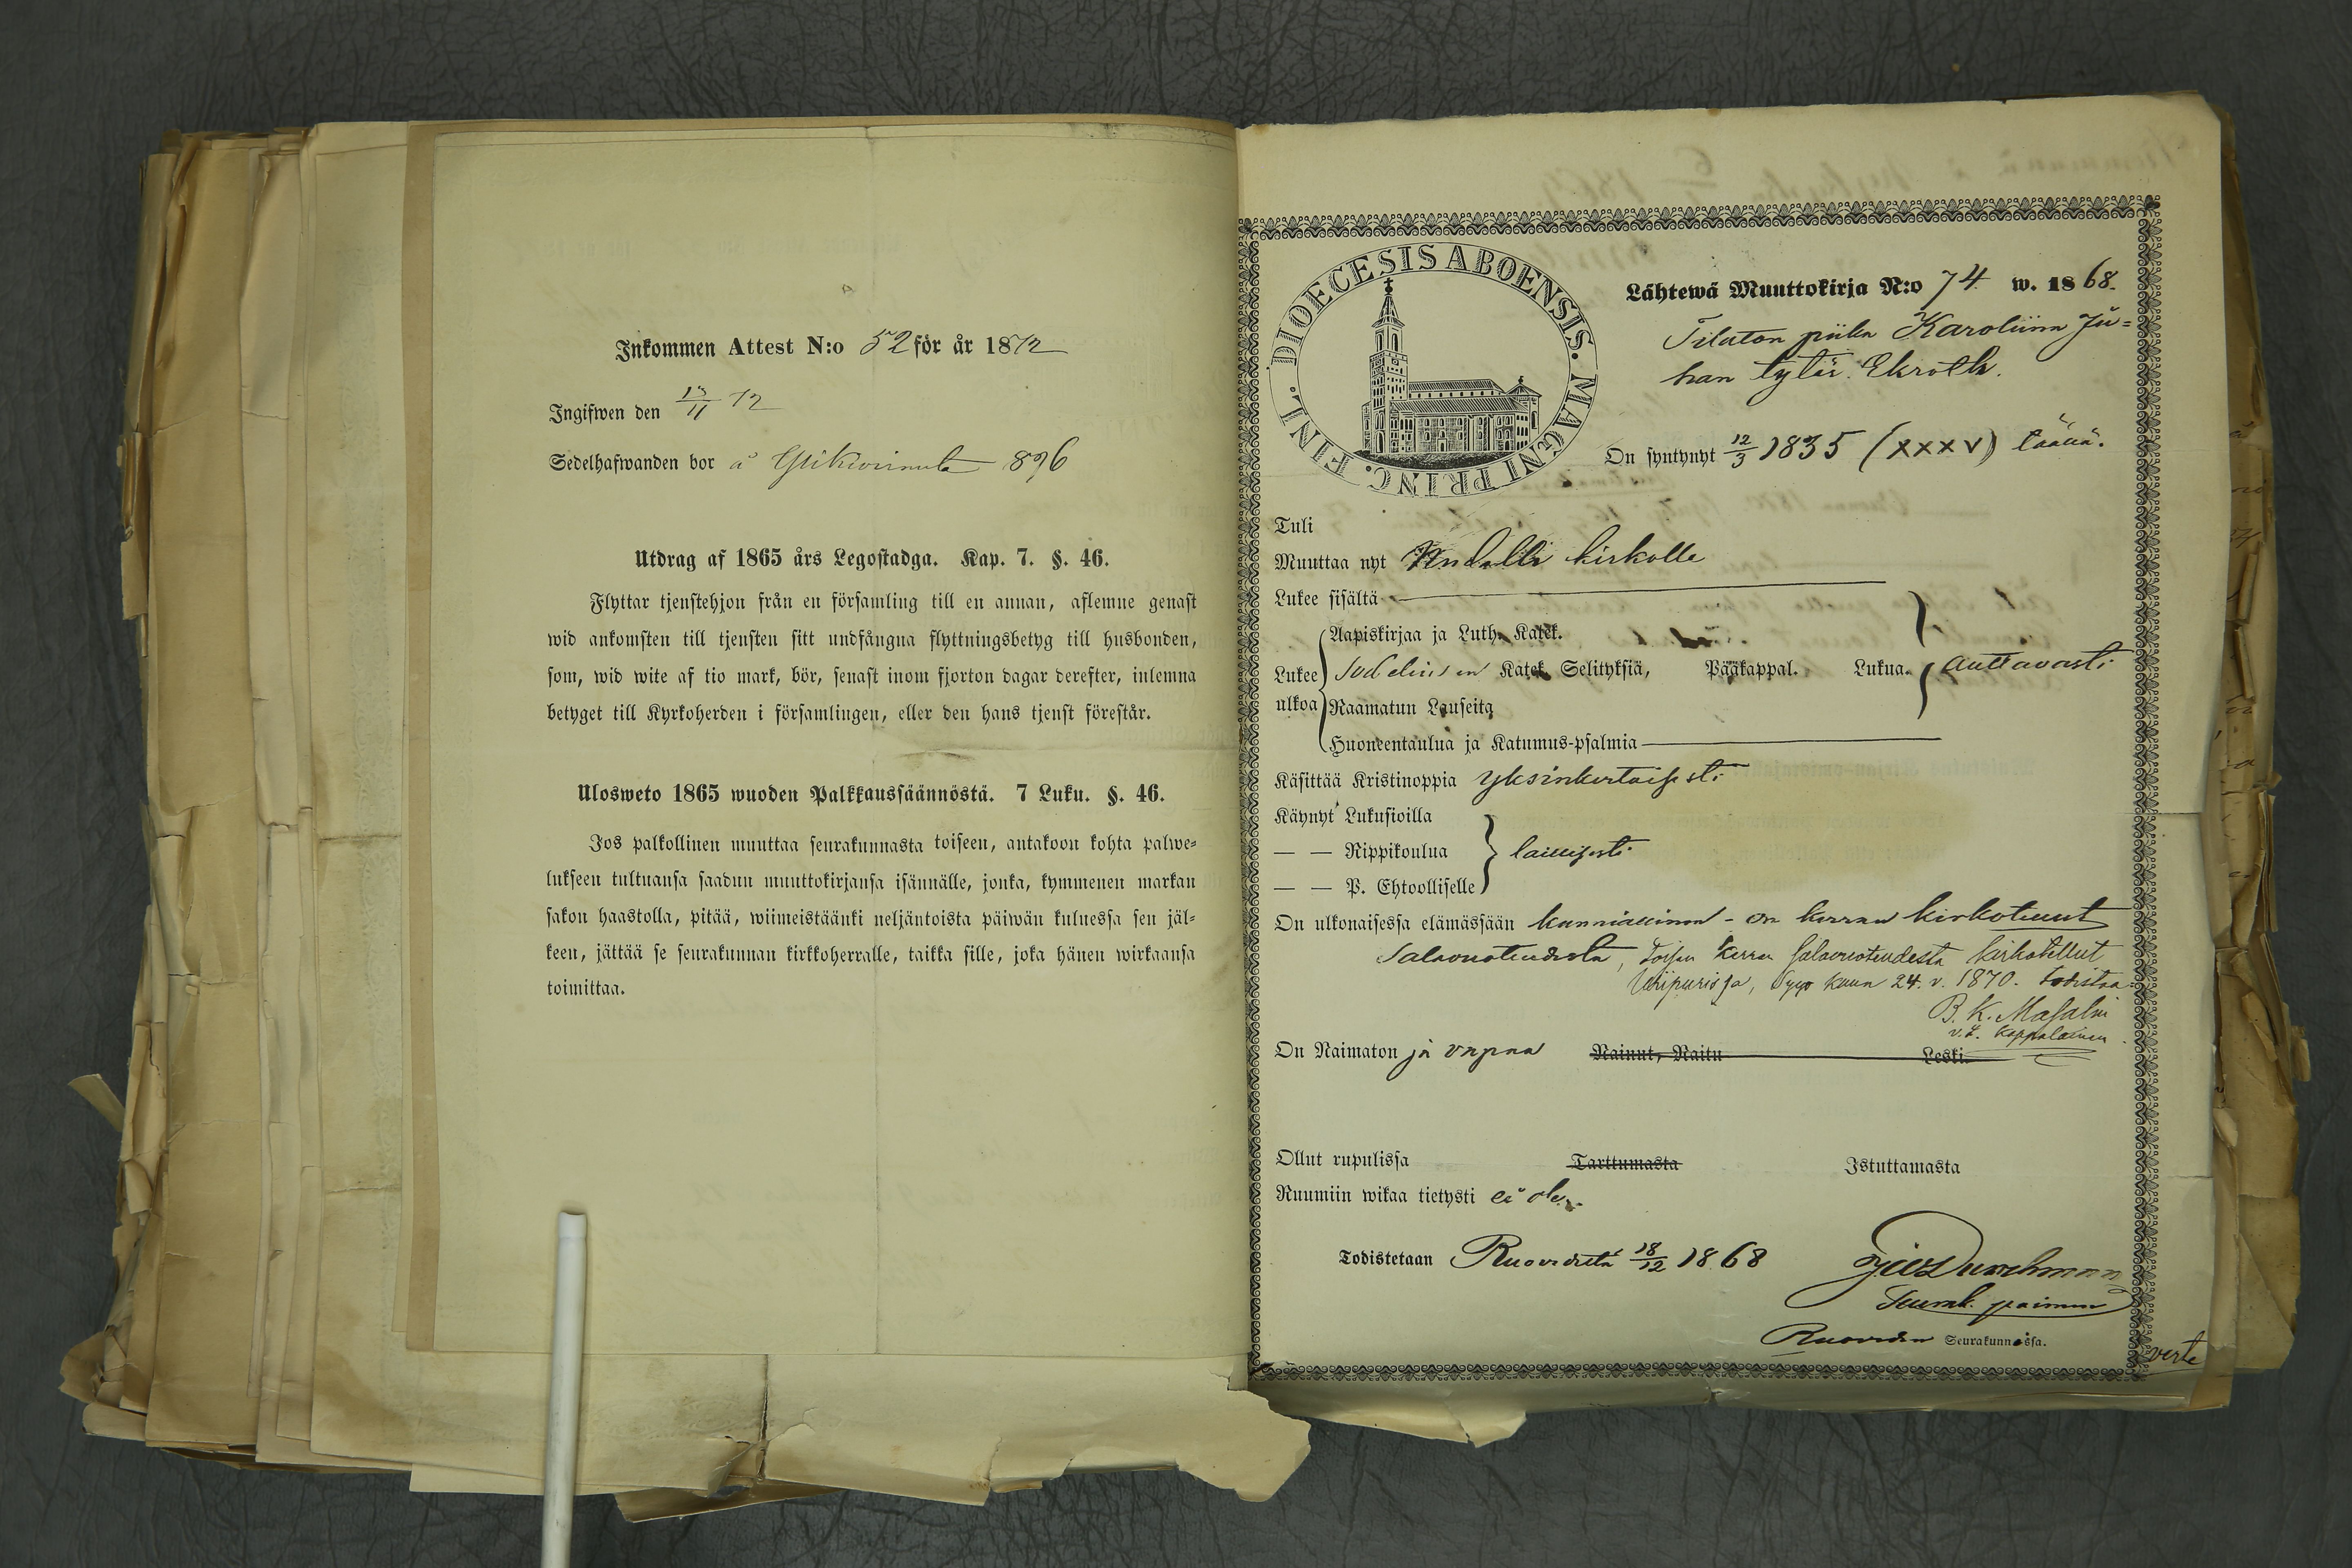 Inkommen Attest N:o 52 för år 1872
Ingifwen den 13/11 72
Sedelhafwanden bor å 896
Utdrag af 1865 års Legostadga. Kap. 7. §. 46.
Flyttar tjenstehjon från en församling till en annan, aflemne genast
wid ankomsten till tjensten sitt undfångna flyttningsbetyg till husbonden,
som, wid wite af tio mark, bör, senast inom fjorton dagar derefter, inlemna
betyget till Kyrkoherden i församlingen, eller den hans tjenst förestår.
Ulosweto 1865 wuoden Palkkaussäännöstä. 7 Luku. §. 46.
Jos palkollinen muuttaa seurakunnasta toiseen, antakoon kohta palwe-
lukseen tultuansa saadun muuttokirjansa isännälle, jonka, kymmenen markan
sakon haastolla, pitää, wiimeistäänki neljäntoista päiwän kuluessa sen jäl-
keen, jättää se seurakunnan kirkkoherralle, taikka sille, joka hänen wirkaansa
toimittaa.
DIOECESIS ABOENSIS. MAGNI PRINC. FINL.
Lähtewä Muuttokirja N:o 74 w. 1868.
Tilaton piika Karoliina Ju=
han tytär Ekroth.
On syntynyt 12/3 1835 (XXXV) täällä.
Tuli
Muuttaa nyt kirkolle
Lukee sisältä
Aapiskirjaa ja Luth. Katek.
Lukee ulkoa Katek. Selityksiä, Pääkappal. Lukua. auttavasti
Raamatun Lauseita
Huoneentaulua ja Katumus-psalmia
Käsittää Kristinoppia yksinkertaisesti
Käynyt Lukusioilla
— — Rippikoulua laillisesti
— — P. Ehtoolliselle
On ulkonaisessa elämässään kunniallinen - on kerran kirkoteltut
Salavuoteudesta, toisen kerran salavuoteudesta kirkotellut
Viipurissa, Syys kuun 24. v. 1870. todistaa:
B. K. Masalin
v.t. kappalainen
On Naimaton ja vapaa Nainut, Naitu Leski
Ollut rupulissa Tarttumasta Istuttamasta
Ruumiin wikaa tietysti ei ole.
Todistetaan Ruovedeltä 18/12 1868
Durchman
Seurak. paimen
Ruoveden Seurakunnassa.
verte